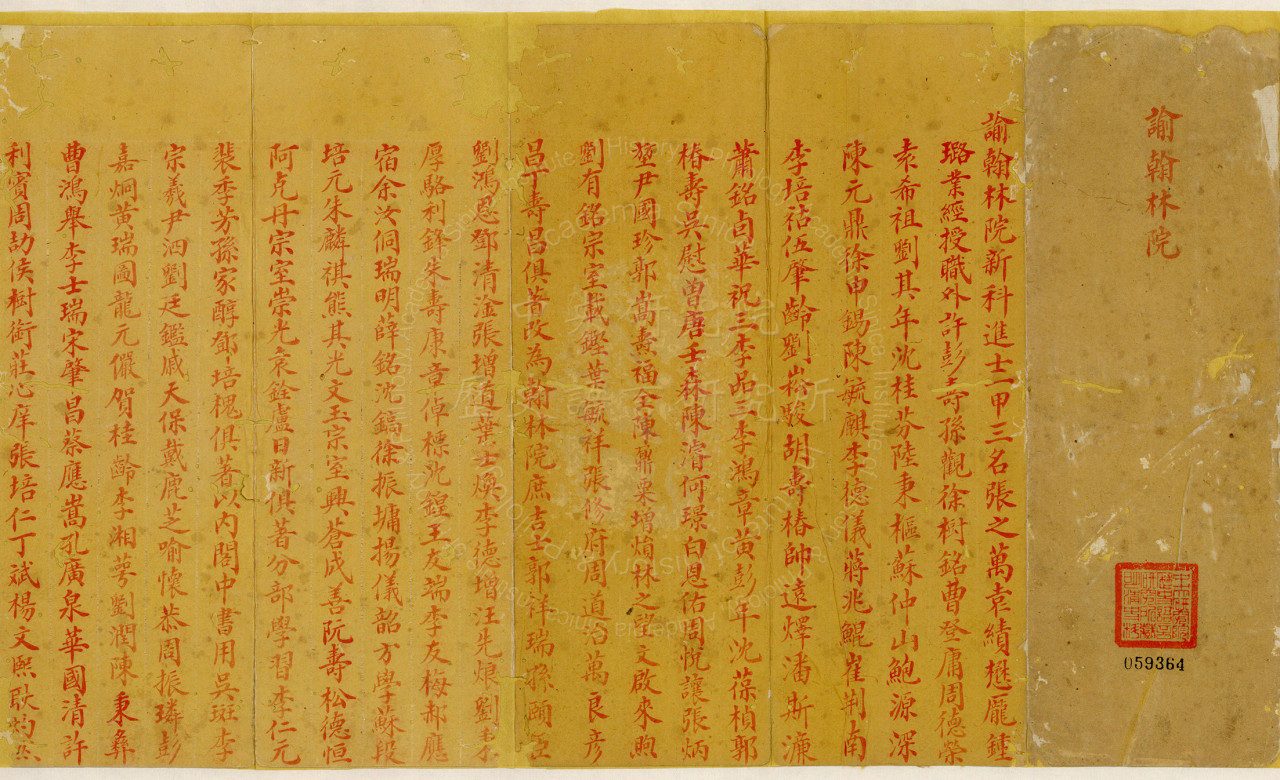 諭翰林院
059364
諭翰林院新科進士一甲三名張之萬袁績懋龐鍾
璐業經授職外許彭壽孫觀徐樹銘曹登庸周德榮
袁希祖劉其年沈桂芬陸秉樞蘇仲山鮑源深
陳元鼎徐申錫陳毓麒李德儀蔣兆鯤崔荊南
李培祜伍肇齡劉崧駿胡壽椿帥遠燡潘斯濂
蕭銘卣華祝三李品三李鴻章黃彭年沈葆楨郭
椿壽吳慰曾唐壬森陳濬何璟白恩佑周悅讓張炳
堃尹國珍郭嵩燾福全陳鼐栗增焴林之望文啟來煦
劉有銘宗室載鏗葉毓祥張修府周道治萬良彥
昌丁壽昌俱著改為翰林院庶吉士郭祥瑞孫頤臣
劉鴻恩鄧清淦張增道葉士煥李德增汪先烺劉
厚駱利鋒朱壽康童倬標沈鍠王友端李友梅郝應
宿余汝侗瑞明薛銘沈鎬徐振墉揚儀韶方學蘇段
培元朱麟祺熊其光文玉宗室興蒼成善阮壽松德恒
阿克丹宗室崇光哀銓盧日新俱著分部學習李仁元
裴季芳孫家醇鄧培槐俱著以内閣中書用吳斑李
宗羲尹泗劉廷鑑戚天保戴鹿芝喻懷恭周振璘彭
嘉炯黃瑞圖龍元儼賀桂齡李湘萼劉潤陳秉彝
曹鴻舉李士瑞宋肇昌蔡應嵩孔廣泉華國清許
利賓周劼侯樹銜莊心庠張培仁丁斌楊文熙耿
中央研究院
歷史語言研究所